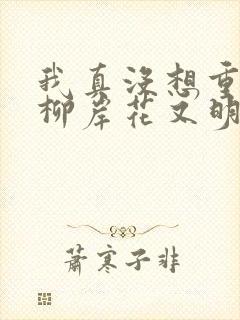 我真没想重
柳岸花又明
萧寒子非